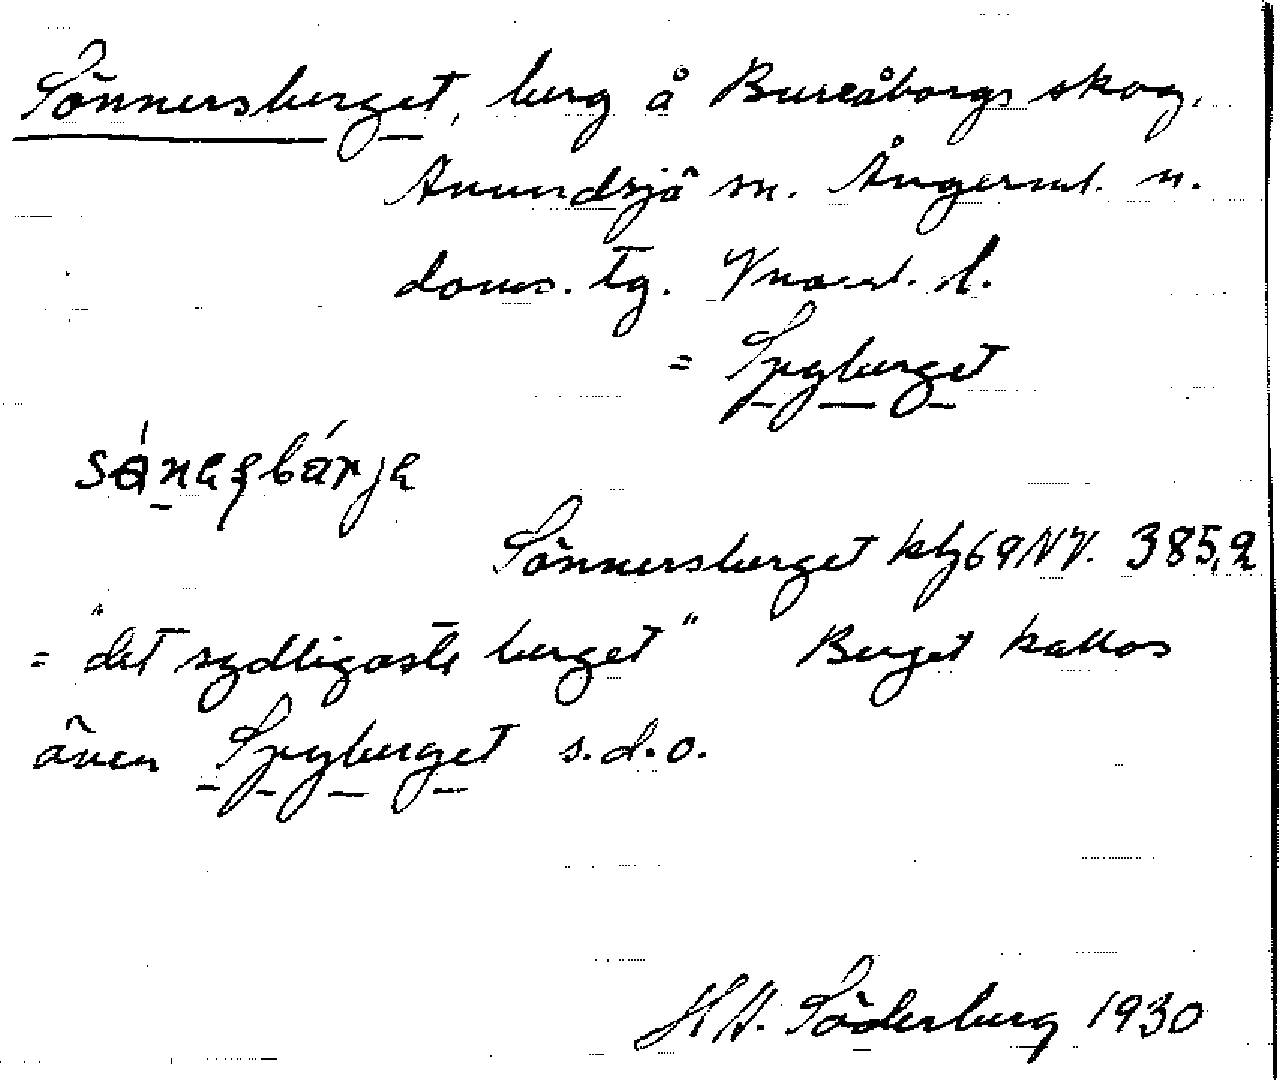 Sönnersberget, berg å Bureåborgs skog,
Anundsjö sn. Ångerml. n.
doms. tg. Vnorrl. l.
= Spyberget
sɵ́nesbárje
Sönnersberget kbl 69 NV. 385,2
= "det sydligaste berget" Berget kallas
även Spyberget s.d.o.
H H. Söderberg 1930